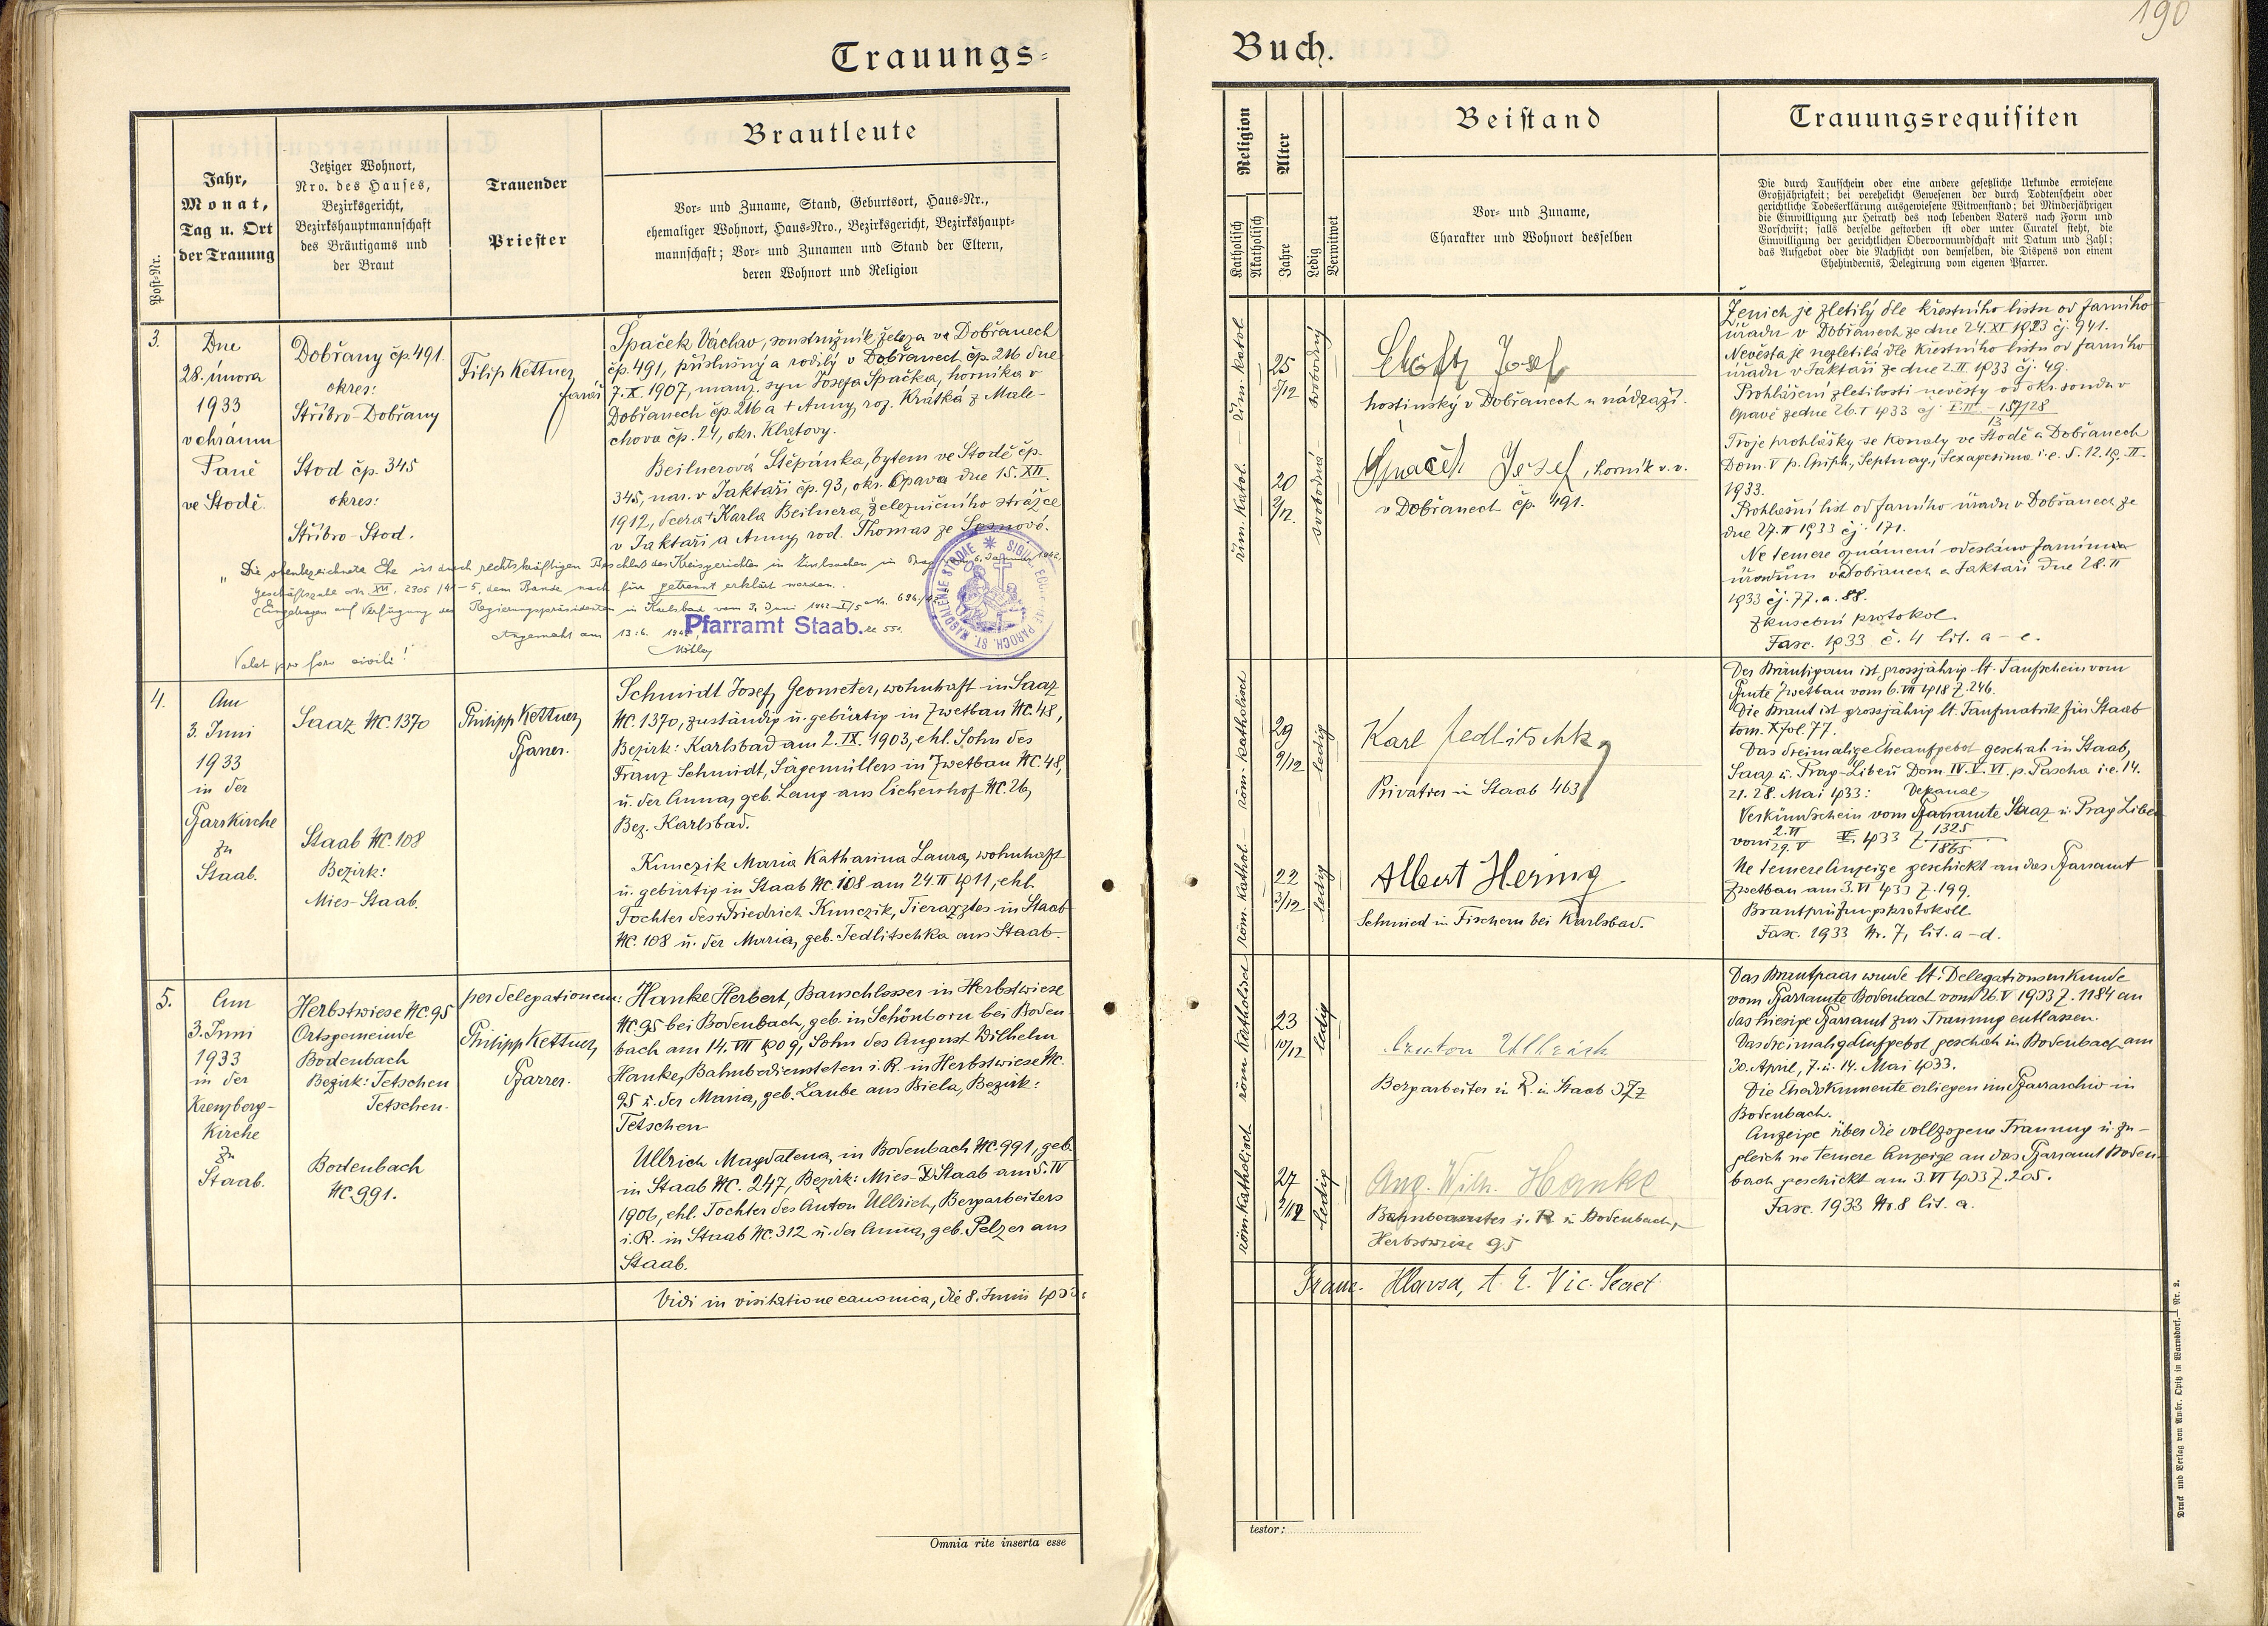 190
Trauungs-
Buch.
Post-Nr.
Jahr,
Monat,
Tag u. Ort
der Trauung
Jetziger Wohnort,
Nro. des Hauses,
Bezirksgericht,
Bezirkshauptmannschaft
des Bräutigams und
der Braut
Trauender
Priester
Brautleute
Vor- und Zuname, Stand, Geburtsort, Haus-Nr.,
ehemaliger Wohnort, Haus-Nro., Bezirksgericht, Bezirkshaupt-
mannschaft; Vor- und Zunamen und Stand der Eltern,
deren Wohnort und Religion
Religion
Katholisch
Akatholisch
Alter
Jahre
Ledig
Verwitwet
Beistand
Vor- und Zuname,
Charakter und Wohnort desselben
Trauungsrequisiten
Die durch Taufschein oder eine andere gesetzliche Urkunde erwiesene
Großjährigkeit; bei verehelicht Gewesenen der durch Todtenschein oder
gerichtliche Todeserklärung ausgewiesene Witwenstand; bei Minderjährigen
die Einwilligung zur Heirath des noch lebenden Vaters nach Form und
Vorschrift; falls derselbe gestorben ist oder unter Curatel steht, die
Einwilligung der gerichtlichen Obervormundschaft mit Datum und Zahl;
das Aufgebot oder die Nachsicht von demselben, die Dispens von einem
Ehehindernis, Delegirung vom eigenen Pfarrer.
3.
Dne
28. února
1933
v chrámu
Páně
ve Stodě.
Dobřany čp. 491.
okres:
Stříbro-Dobřany
Stod čp. 345
okres:
Stříbro-Stod.
Filip Kettner,
farář
Špaček Václav, soustružník železa ve Dobřanech
čp. 491, příslušný a rodilý v Dobřanech čp. 216 dne
7. X. 1907, manž. syn Josefa Špačka, horníka v
Dobřanech čp. 216 a + Anny, roz. Krátká z Male-
chova čp. 24, okr. Klatovy.
Beilnerová Štěpánka, bytem ve Stodě čp.
345, nar. v Jaktaři čp. 93, okr. Opava dne 15. XII.
1912, dcera + Karla Beilnera, železničního strážce
v Jaktaři a Anny, rod. Thomas ze
"Die obenbezeichnete Ehe ist durch rechtskräftigen Beschluß des Kreisgerichtes in Zivilsachen in Prag 6. Jänner 1942,
Geschäftszahl XII, 2305/41-5, dem Bande nach für getrennt erklärt worden.
Eingetragen auf Verfügung des Regierungspräsidenten in Karlsbad vom 3. Juni 1942
Angemerkt am 13.6. 1942,
Pfarramt Staab.
Valet pro foro civili!
25
svobodný
řím. katol.
Josef
hostinský v Dobřanech u nádraží.
20
2/12.
svobodná
řím. katol.
Špaček Josef, horník v. v.
v Dobřanech čp. 491.
Ženich je zletilý dle křestního listu od farního
úřadu v Dobřanech ze dne 24. XI 1923 čj. 941.
Nevěsta je nezletilá dle křestního listu od farního
úřadu v Jaktaři ze dne 2. II. 1933 čj. 49.
Prohlášení zletilosti nevěsty od okr. soudu v
Opavě ze dne 26. I 1933
Troje prohlášky se konaly ve Stodě a Dobřanech
Dom. V p. Epiph., Septuag., Sexagesima i. e. 5. 12. 19. II.
1933.
Prohlašní list od farního úřadu v Dobřanech ze
dne 27. II 1933 čj. 171.
Ne temere oznámení odesláno farním
úřadům v Dobřanech a Jaktaři dne 28. II
1933 čj. 77. a. 88.
Zkušební protokol
Fasc. 1933 č. 4 lit. a – e.
4.
Am
3. Juni
1933
in der
Pfarrkirche
zu
Staab.
Saaz NC. 1370
Staab NC. 108
Bezirk:
Mies-Staab.
Philipp Kettner,
Pfarrer.
Schmidt Josef, Geometer, wohnhaft in Saaz
NC. 1370, zuständig u. gebürtig in Zwetbau NC. 48,
Bezirk: Karlsbad am 2. IX. 1903, ehl. Sohn des
Franz Schmidt, Sägemüllers in Zwetbau NC. 48,
u. der Anna, geb. Lang aus Eichenhof NC. 26,
Bez. Karlsbad.
Kunczik Maria Katharina Laura, wohnhaft
u. gebürtig in Staab NC. 108 am 24. II 1911, ehl.
Tochter des + Friedrich Kunczik, Tierarztes in Staab
NC. 108 u. der Maria, geb. Jedlitschka aus Staab.
röm. katholisch
29
9/12
ledig
Karl Jedlitschka
Privatier in Staab 463
röm. kathol.
22
3/12
ledig
Albert Hering
Schmied in Fischern bei Karlsbad.
Der Bräutigam ist grossjährig lt. Taufschein vom
Pfarramte Zwetbau vom 6. VII 1918 Z. 246.
Die Braut ist grossjährig lt. Taufmatrik für Staab
tom. X fol. 77.
Das dreimalige Eheaufgebot geschah in Staab,
Saaz u. Prag-Libeň Dom. IV. V. VI. p. Pascha i. e. 14.
21. 28. Mai 1933: Dekanal-
Verkündschein vom Pfarramte Saaz u. Prag Libeň
vom 2. VI / 29. V 1933 Z 1325 / 1865
Ne temere Anzeige geschickt an das Pfarramt
Zwetbau am 3. VI 1933 Z. 199.
Brautprüfungsprotokoll
Fasc. 1933 Nr. 7, lit. a – d.
5.
Am
3. Juni
1933
in der
Kreuzberg-
Kirche
zu
Staab.
Herbstwiese NC. 95
Ortsgemeinde
Bodenbach
Bezirk: Tetschen
Tetschen.
Bodenbach
NC. 991.
per delegationem:
Philipp Kettner,
Pfarrer.
Hanke Herbert, Bauschlosser in Herbstwiese
NC. 95 bei Bodenbach, geb. in Schönborn bei Boden-
bach am 14. VII 1909, Sohn des August Wilhelm
Hanke, Bahnbediensteten i. R. in Herbstwiese NC.
95 u. der Maria, geb. Laube aus Biela, Bezirk:
Tetschen
Ullrich Magdalena, in Bodenbach NC. 991, geb.
in Staab NC. 247, Bezirk: Mies-Staab am 5. IV
1906, ehl. Tochter des Anton Ullrich, Bergarbeiters
i. R. in Staab NC. 312 u. der Anna, geb. Pelzer aus
Staab.
röm. katholisch
23
10/12
ledig
Anton Ullrich
Bergarbeiter in R. in Staab
röm. katholisch
27
ledig
Aug. Wilh. Hanke
Bahnbeamter i. R. in Bodenbach,
Herbstwiese 95
Das Brautpaar wurde lt. Delegationsurkunde
vom Pfarramte Bodenbach vom 26. V 1933 Z. 1184 an
das hiesige Pfarramt zur Trauung entlassen.
Das dreimalige Aufgebot geschah in Bodenbach am
30. April, 7. u. 14. Mai 1933.
Die Ehedokumente erliegen im Pfarrarchiv in
Bodenbach.
Anzeige über die vollzogene Trauung u. zu-
gleich ne temere Anzeige an das Pfarramt Boden-
bach geschickt am 3. VI 1933 Z. 205.
Fasc. 1933 Nr. 8 lit. a.
Vidi in visitatione canonica, die 8. Junii 1933:
Franc. Hlavsa, Vic. Secret
Omnia rite inserta esse
testor:
Druck und Verlag von Ambr. Opitz in Warnsdorf.— Nr. 2.